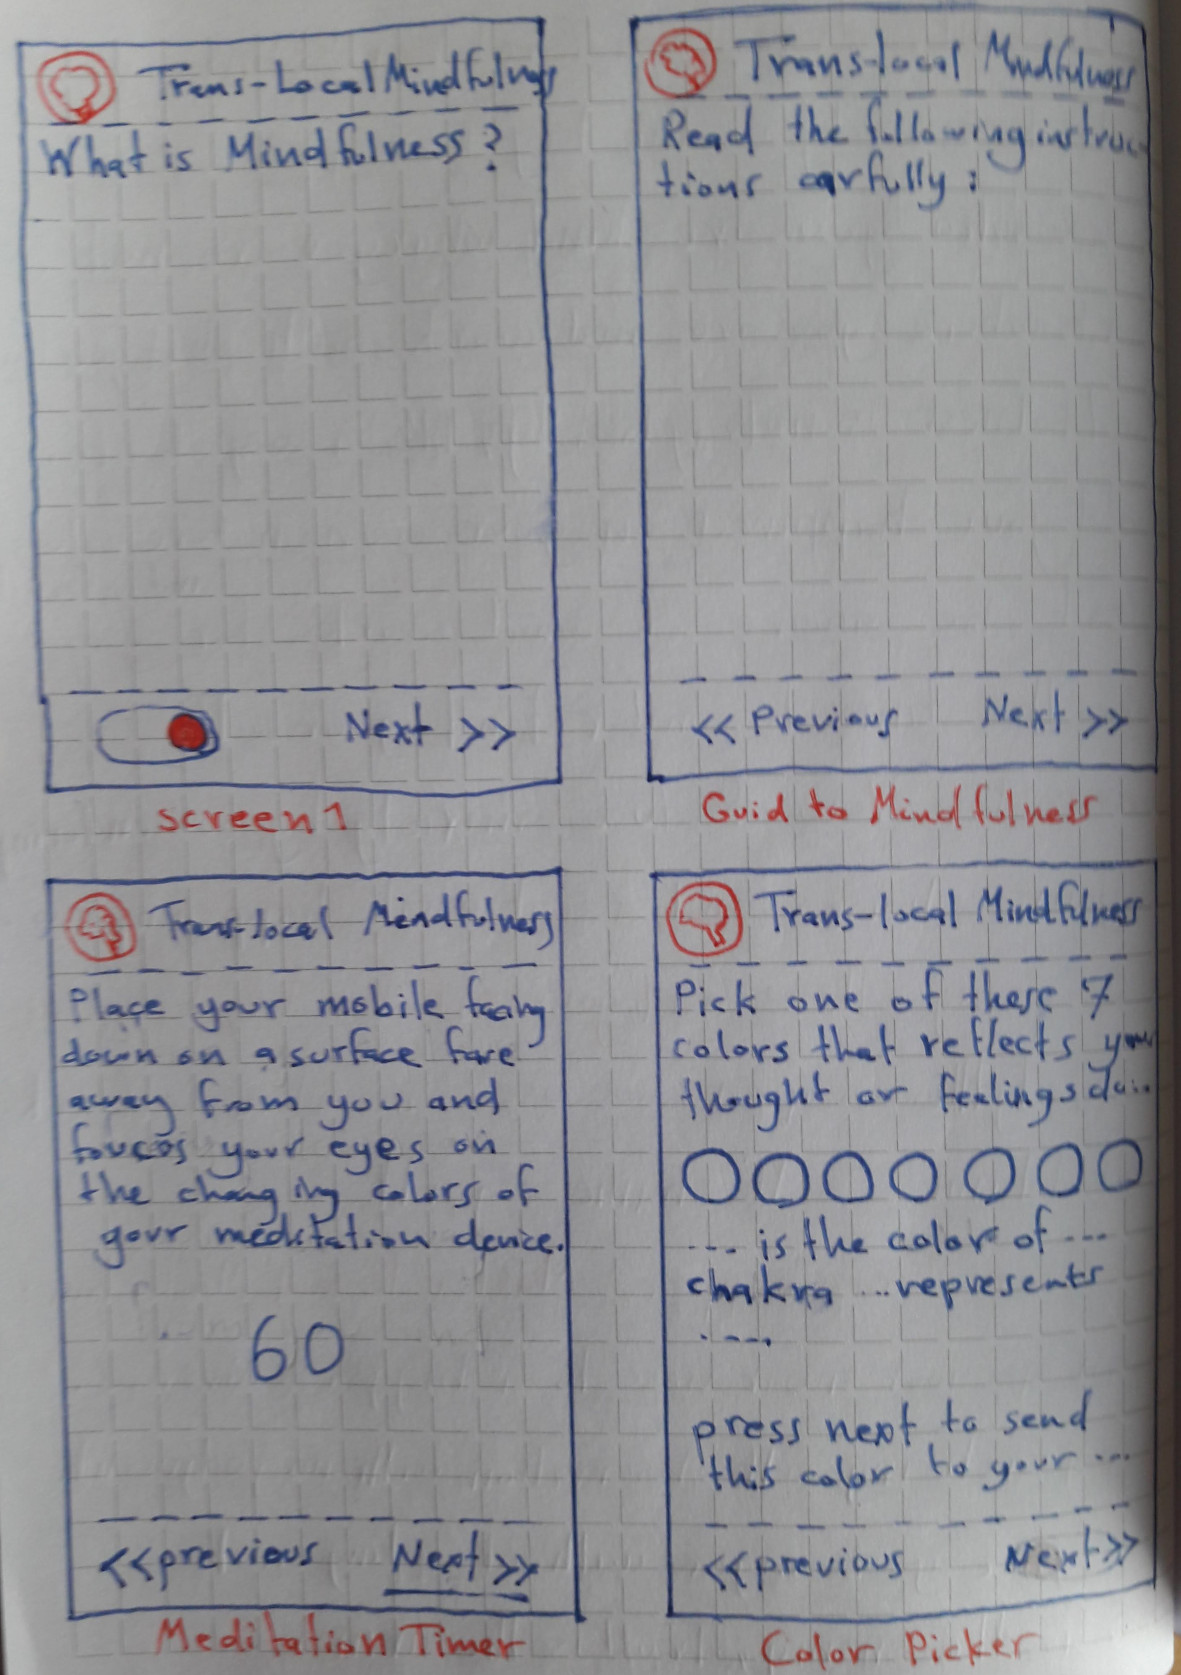 Trans-Local Mindfulness
What is Mindfulness?
Next >>
screen1
Trans-local Mindfulness
Read the following instruc
tions carfully:
<< Previous Next >>
Guid to Mindfulness
Trans-local Mindfulness
Place your mobile facing
down on a surface fare
away from you and
foucos your eyes on
the changing colors of
your meditation device.
60
<<previous Next >>
Meditation Timer
Trans-local Mindfulness
Pick one of these 7
colors that reflects your
thought or feelings du...
... is the color of ...
chakra ... represents
....
press next to send
this color to your ...
<<previous Next>>
Color Picker